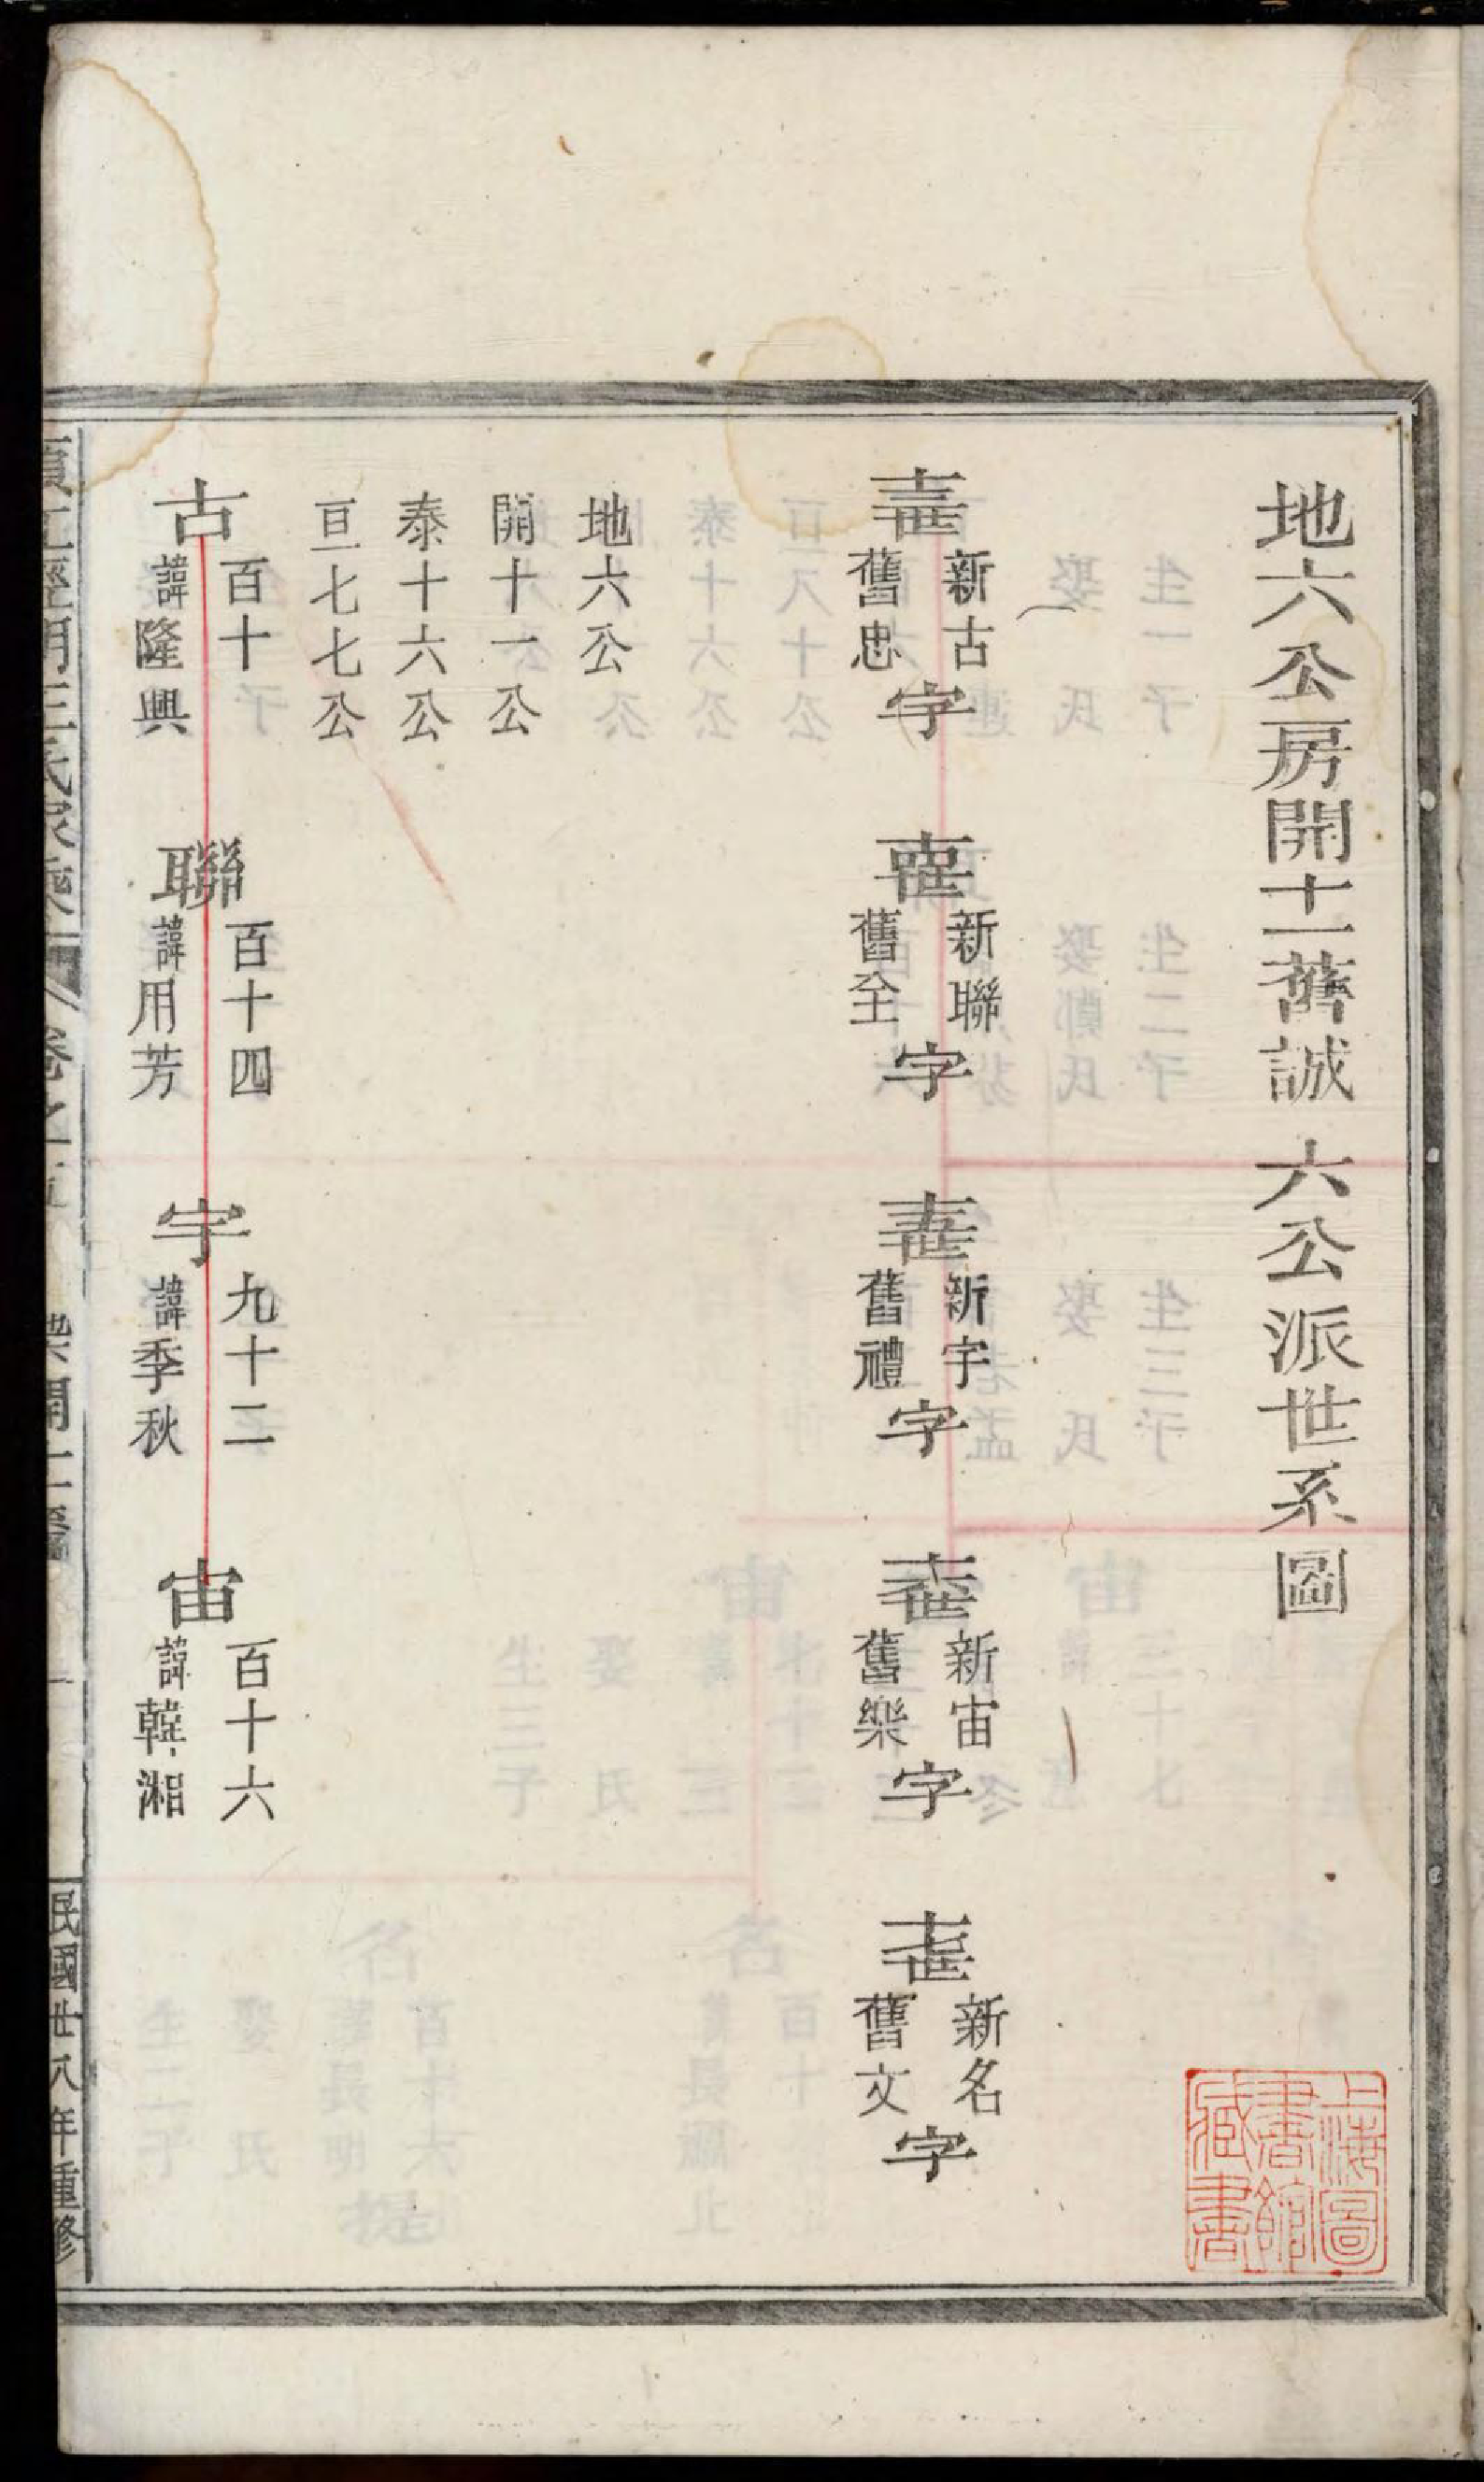 地六公房開十一舊誠 六公派世系圖
十三世 新古 舊忠 字
十四世 新聯 舊全 字
十五世 新字 舊禮 字
十六世 新宙 舊樂 字
十七世 新名 舊文 字
地六公
開十一公
泰十六公
亘七七公
古 百十 諱隆興
聯 百十四 諱用芳
字 九十二 諱季秋
宙 百十六 諱韓湘
民國廿八年重修
上海圖書館藏書